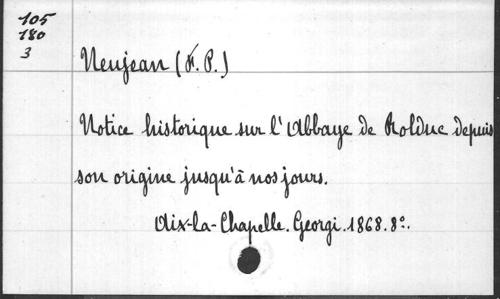 105
180
3
Neujean (F. P.)
Notice historique sur l'Abbaye de Rolduc depuis
son origine jusqu'à nos jours.
Aix-la-Chapelle. Georgi. 1868. 8°.